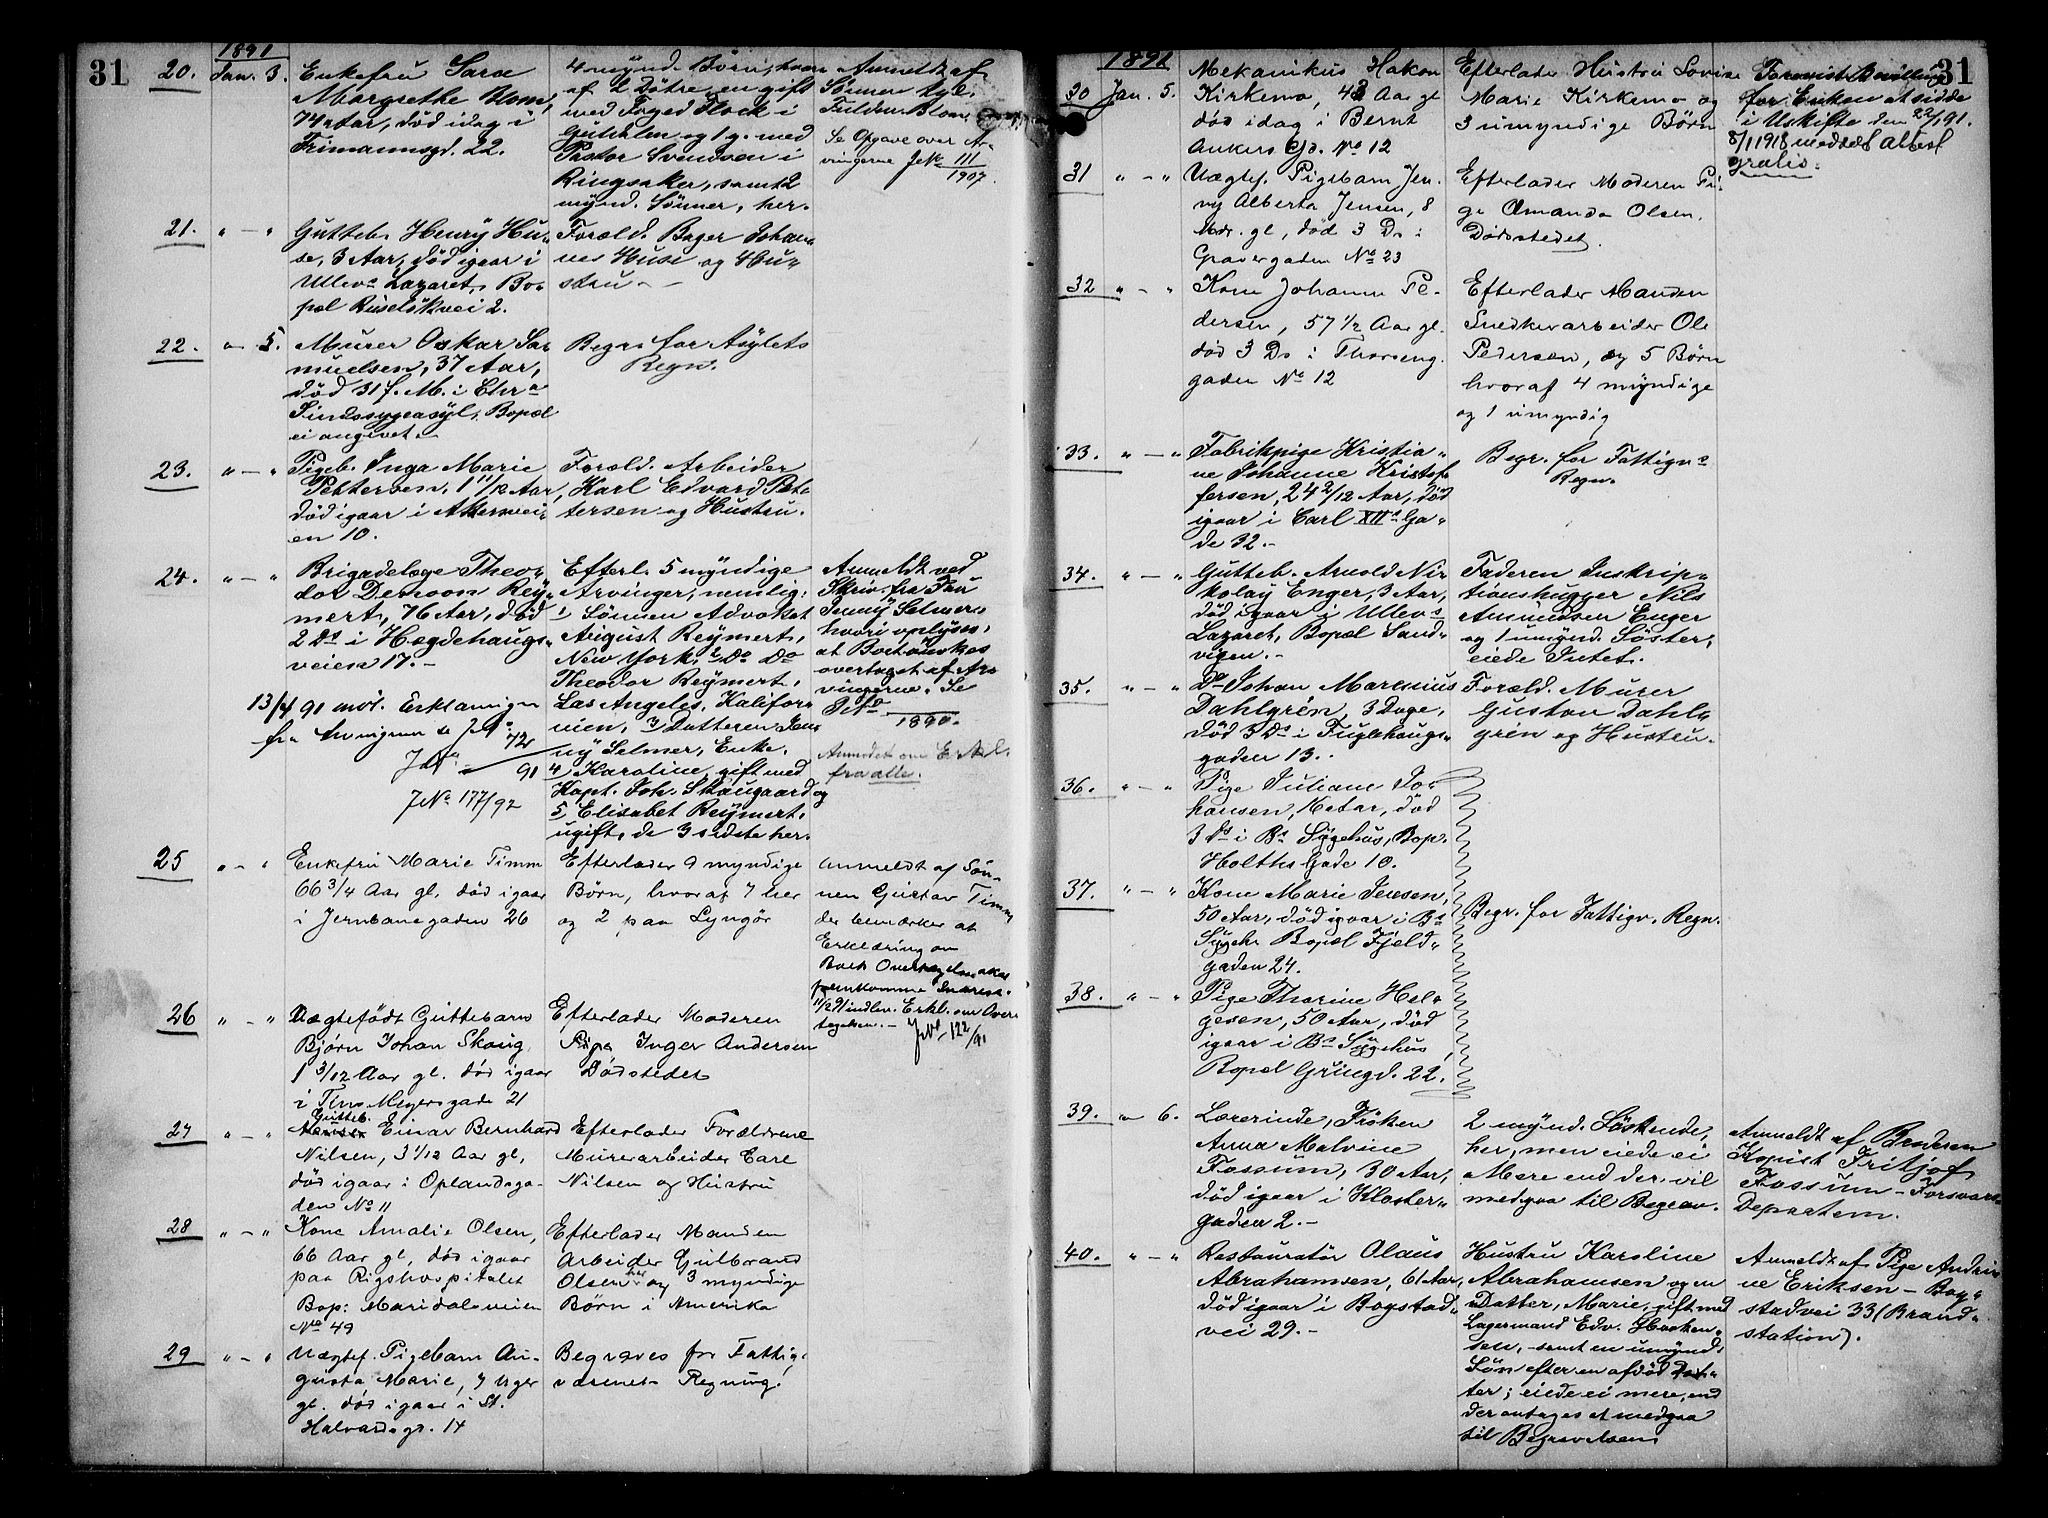 31
1891
20. Jan. 3. Enkefru Sara
Margrethe Blom,
74 Aar, død idag i
Frimannsgd. 22.
4 mynd. Børn, hvoraf
af 2 Døtre, en gift
med Foged Flock i
og 1 g. med
Pastor Svendsen i
Ringsaker, samt 2
mynd. Sönner, her.
Anmeldt af
Sönnen
Blom.
Se Opgave over Ar-
vingerne J.No 111
1907.
21. " - " Gutteb. Henry Hu-
se, 3 Aar, död igaar i
Ullevs Lazaret, Bo-
pæl Ruselökvei 2.
Foræld. Bager Johan-
nes Huse og Hu-
stru -
22. " 5. Murer Oskar Sa-
muelsen, 37 Aar,
død 31 f. M. i Chra
Sindssygeasyl. Bopæl
ei angivet.
Begrs for Asylets
Regn.
23. " - " Pigeb. Inga Marie
Pettersen, 1 11/12 Aar,
död igaar i Akersvei-
en 10.
Foræld. Arbeider
Karl Edvard Pet-
tersen og Hustru.
24. " - " Brigadelæge Theo-
dor Rey-
mert, 76 Aar, död
2 Ds i Hægdehaugs-
veien 17. -
13/4 91 Erklæringer
fra Arvingerne
J.No 72
91
J.No 177/92
Efterl. 5 myndige
Arvinger, nemlig:
1 Sönnen Advokat
August Reymert,
New York, 2 Do Do
Theodor Reymert,
Los Angeles, Kalifor-
nien, 3 Datteren Jen-
ny Selmer, Enke,
4 Karoline, gift med
Kapt. Joh. Skougaard og
5, Elisabet Reymert,
ugift, de 3 sidste her.
Anmeldt ved
Skriv. fra Fru
Jenny Selmer,
hvori oplyses,
at Boet önskes
overtaget af Ar-
vingerne. Se
J.No
1890.
Anmodet om Erkl.
fra alle.
25 " - " Enkefru Marie Timm
66 3/4 Aar gl. død igaar
i Jernbanegaden 26
Efterlader 9 myndige
Börn, hvoraf 7 her
og 2 paa Lyngör
Anmeldt af Sön-
nen Gustav Timm
der bemærker at
Erklæring om
Boets Overtagelse
fremkomme
11/2 91 indlev. Erkl. om Over-
tagelsen. - J.No 122/91
26 " - " Uægtefödt Guttebarn
Bjørn Johan Skoug,
1 3/12 Aar gl. död igaar
i Thvs Meyersgade 21
Efterlader Moderen
Pige Inger Andersen
Dödstedet
27 " - " Gutteb.
Einar Bernhard
Nilsen, 3 1/12 Aar gl,
död igaar i Oplandsga-
den No 11
Efterlader Forældrene
Murerarbeider Carl
Nilsen og Hustru
28 " - " Kone Amalie Olsen,
66 Aar gl, död igaar
paa Rigshospitalet
Bop: Maridalsveien
No 49
Efterlader Manden
Arbeider Gulbrand
Olsen her og 3 myndige
Börn i Amerika
29 " - " Uægtef. Pigebarn Au-
gusta Marie, 7 Uger
gl. död igaar i St.
Halvardsgd. 14
Begraves for Fattig-
væsenets Regning.
31
1891
30 Jan. 5. Mekanikus Hakon
Kirkemo, 43 Aar gl
död idag i Bernt
Ankers Gd. No 12
Efterlader Hustru Lovise
Marie Kirkemo og
3 umyndige Börn
Forevist Bevilling
for Enken at sidde
i Uskifte den 22/1 91.
8/1 1918 meddelt Attest
gratis.
31 " - " Uægtef. Pigebarn Jen-
ny Alberta Jensen, 8
Mdr. gl, död 3 Ds i
Gravergaden No 23
Efterlader Moderen Pi-
ge Amanda Olsen.
Dödsstedet.
32 " - " Kone Johanne Pe-
dersen, 57 1/2 Aar gl.
död 3 Ds i Thorseng.
gaden No 12
Efterlader Manden
Snedkerarbeider Ole
Pedersen, og 5 Börn
hvoraf 4 myndige
og 1 umyndig
33. " - " Fabrikpige Kristia-
ne Johanne Kristof-
fersen, 24 2/12 Aar, död
igaar i Carl XIIs Ga-
de 32. -
Begr. for Fattigvs
Regn.
34. " - " Gutteb. Arnold Ni-
kolay Enger, 3 Aar,
död igaar i Ullevs
Lazaret, Bopæl Sand-
vigen. -
Faderen Inskrip-
tionshugger Nils
Amundsen Enger
og 1 umynd. Söster,
eiede Intet.
35. " - " Do Johan Marenius
Dahlgrén, 3 Dage,
död 3 Ds i Fuglehaugs-
gaden 13.
Foræld. Murer
Gustav Dahl-
grén og Hustru.
36. " - " Pige Juliane Jo-
hansen, 16 Aar, död
3 Ds i Bs Sygehus, Bop.
Holths Gade 10.
37. " - " Kone Marie Jensen,
50 Aar, död igaar i Bs
Sygeh. Bopæl Fjeld-
gaden 24.
Begr. for Fattigv. Regn.
38. " - " Pige Thorine Hel-
gesen, 50 Aar, död
igaar i Bs Sygehus,
Bopæl Grüngd. 22.
39. " 6. Lærerinde, Fröken
Anna Malvine
Fossum, 30 Aar,
död igaar i Kloster-
gaden 2. -
2 mynd. Söskende,
her, men eiede ei
Mere end der vil
medgaa til Begrav.
Anmeldt af Broderen
Kopist Fritjof
Fossum - Forsvars
Departem.
40. " - " Restauratör Olaus
Abrahamsen, 61 Aar,
död igaar i Bogstad-
vei 29. -
Hustru Karoline
Abrahamsen og en
Datter, Marie, gift med
Lagermand Edv. Haaken-
sen, samt en umynd.
Sön efter en afdöd Dat-
ter; eiede ei mere, end
der antages at medgaa
til Begravelsen.
Anmeldt af Pige Andri-
ne Eriksen - Bog-
stadvei 33 (Brand-
station).